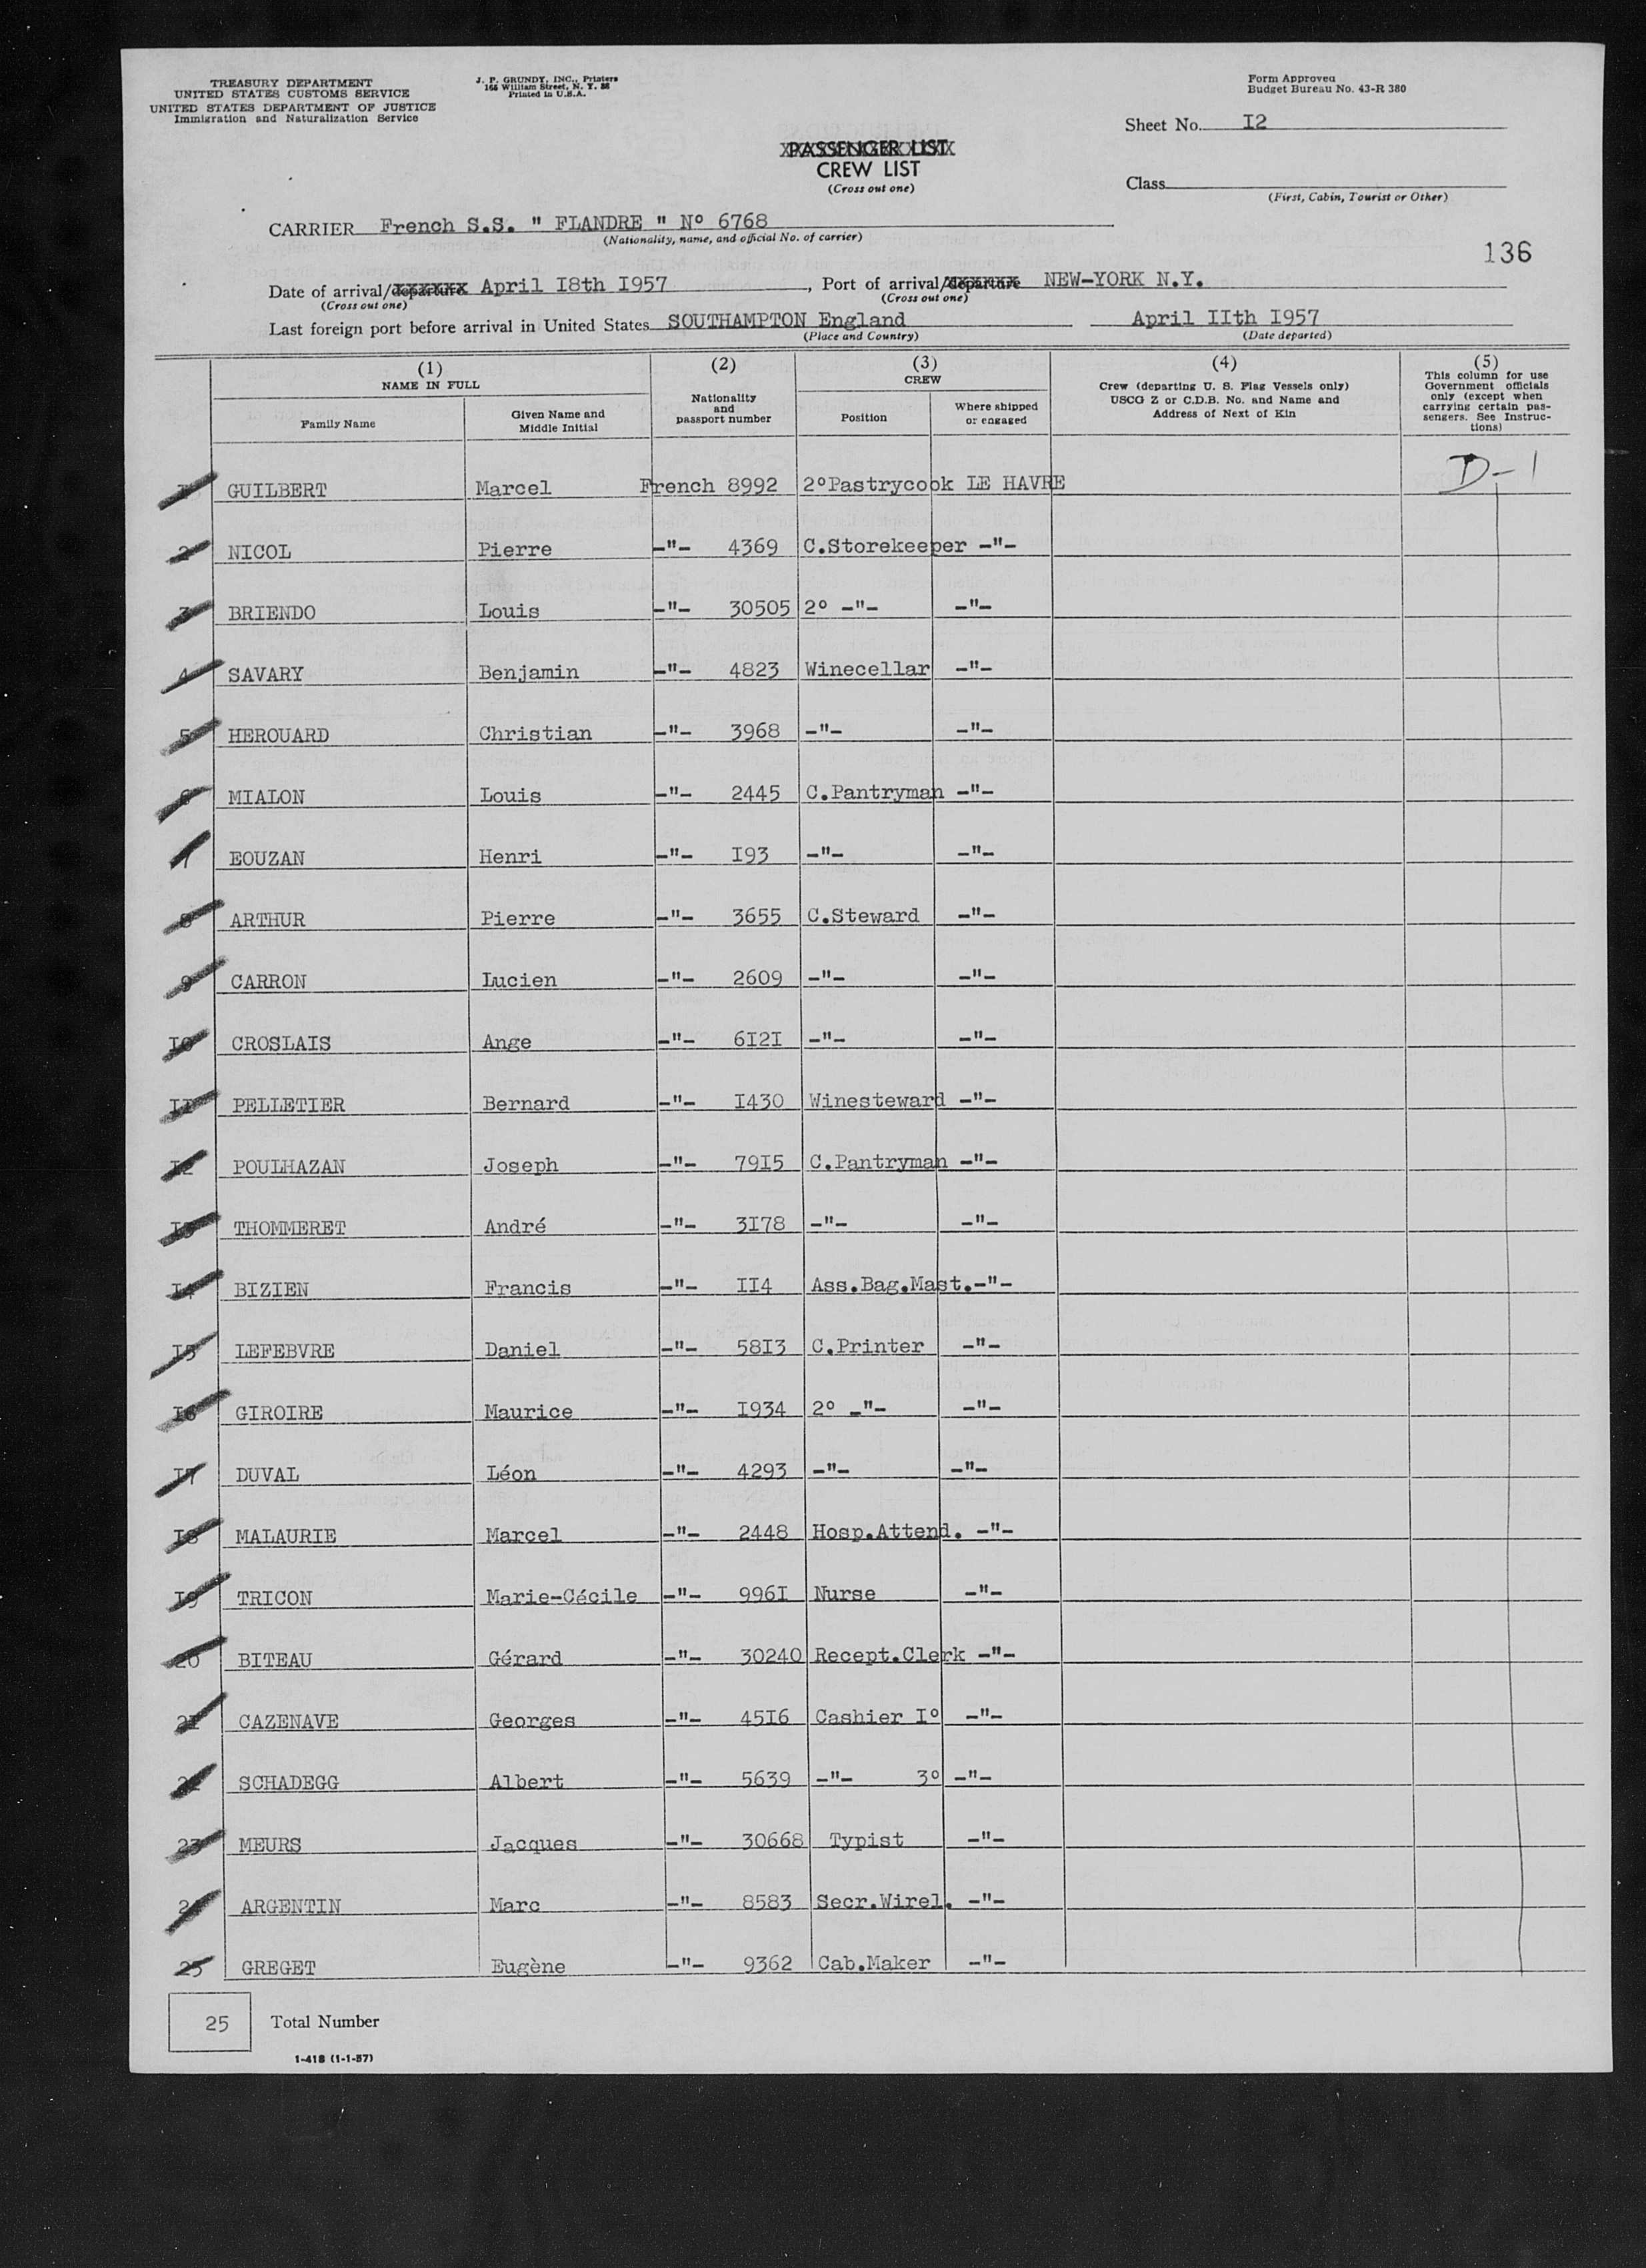 TREASURY DEPARTMENT
UNITED STATES CUSTOMS SERVICE
UNITED STATES DEPARTMENT OF JUSTICE
Immigration and Naturalization Service
J. P. GRUNDY, INC., Printers
166 William Street, N. Y. 38
Printed in U.S.A.
Form Approved
Budget Bureau No. 43-R 380
Sheet No. I2
PASSENGER LIST
CREW LIST
(Cross out one)
Class
(First, Cabin, Tourist or Other)
CARRIER French S.S. " FLANDRE " Nº 6768
(Nationality, name, and official No. of carrier)
136
Date of arrival/departure April I8th I957, Port of arrival/departure NEW-YORK N.Y.
(Cross out one) (Cross out one)
Last foreign port before arrival in United States SOUTHAMPTON England April IIth I957
(Place and Country) (Date departed)
(1) NAME IN FULL
Family Name
Given Name and Middle Initial
(2)
Nationality and passport number
(3) CREW
Position
Where shipped or engaged
(4)
Crew (departing U. S. Flag Vessels only)
USCG Z or C.D.B. No. and Name and
Address of Next of Kin
(5)
This column for use
Government officials
only (except when
carrying certain pas-
sengers. See Instruc-
tions)
D-1
GUILBERT Marcel French 8992 2ºPastrycook LE HAVRE
2 NICOL Pierre -"- 4369 C.Storekeeper -"-
3 BRIENDO Louis -"- 30505 2º -"- -"-
4 SAVARY Benjamin -"- 4823 Winecellar -"-
5 HEROUARD Christian -"- 3968 -"- -"-
6 MIALON Louis -"- 2445 C.Pantryman -"-
7 EOUZAN Henri -"- I93 -"- -"-
8 ARTHUR Pierre -"- 3655 C.Steward -"-
9 CARRON Lucien -"- 2609 -"- -"-
I0 CROSLAIS Ange -"- 6I2I -"- -"-
II PELLETIER Bernard -"- I430 Winesteward -"-
I2 POULHAZAN Joseph -"- 79I5 C.Pantryman -"-
I3 THOMMERET André -"- 3I78 -"- -"-
I4 BIZIEN Francis -"- II4 Ass.Bag.Mast.-"-
I5 LEFEBVRE Daniel -"- 58I3 C.Printer -"-
I6 GIROIRE Maurice -"- I934 2º -"- -"-
I7 DUVAL Léon -"- 4293 -"- -"-
I8 MALAURIE Marcel -"- 2448 Hosp.Attend. -"-
I9 TRICON Marie-Cécile -"- 996I Nurse -"-
20 BITEAU Gérard -"- 30240 Recept.Clerk -"-
2I CAZENAVE Georges -"- 45I6 Cashier Iº -"-
22 SCHADEGG Albert -"- 5639 -"- 3º -"-
23 MEURS Jacques -"- 30668 Typist -"-
24 ARGENTIN Marc -"- 8583 Secr.Wirel. -"-
25 GREGET Eugène -"- 9362 Cab.Maker -"-
25 Total Number
1-418 (1-1-57)